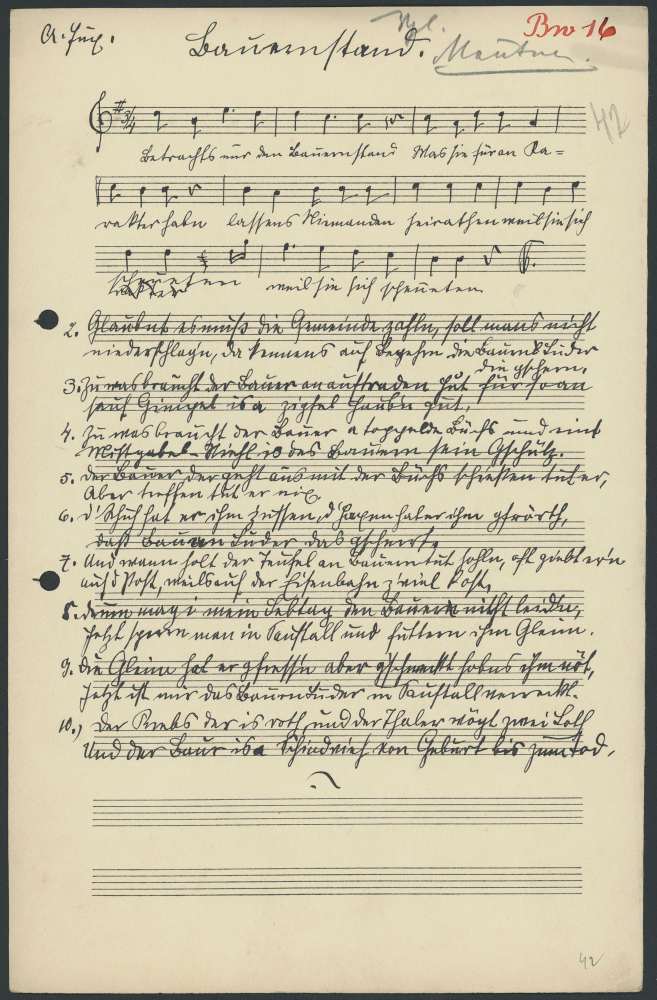 Bauernstand.
Vgl.
Bw 16
Meutner.
42
Betrachts nur den Bauernstand Was sie für an Ka=
rakter habn lassens Niemanden heirathen weil sie sich
scheueten weil sie sich scheueten.
2. Glaubns es muß die Gemeinde zahln, soll mans nicht
niederschlagn, da kennens auf Begehrn die Bauernluder
die gschern.
3. Zu was braucht der Bauer an auftraden Hut, für so an
sauf Gimpel is a zipfel Haubn gut.
4. Zu was braucht der Bauer a toppelde Büchs und eine
Mistgabel - Stiehl is des Bauern sein Gschütz.
5. der Bauer der geht aus mit der Büchs schießen tut er,
Aber treffen tut er nix.
6. d' Schuh hat er ihm zrissen, d' Haxen hat er ihm gfrört,
daß Bauern Luder das gscherte.
7. Und wann holt der Teufel an Bauern tut hohln, oft giebt er'n
auf d' Post, weils auf der Eisenbahn z'viel kost,
8. drum mag i mein Lebtag den Bauern nicht leiden,
Jetzt sperrn man in Saustall und futtern ihm Gleim.
9. die Gleim hat er gfressn aber gschmeckt habns ihm nöt,
Jetzt ist mir das Bauernluder im Saustall verreckt.
10.) Der Krebs der is roth, und der Thaler wögt zwei Loth
Und der Baur is a Schindvieh von Geburt bis zum Tod.
42